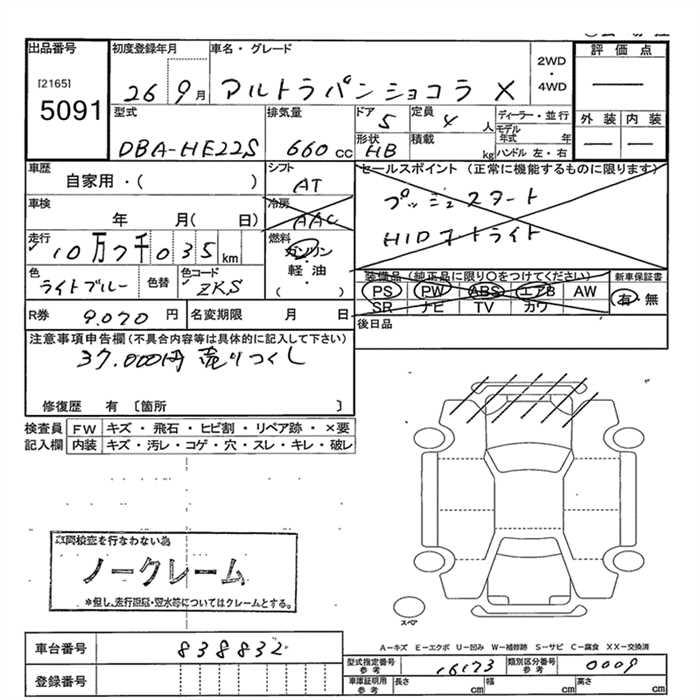 出品番号
[2165]
5091
初度登録年月
26 9月
車名・グレード
アルトラパンショコラ X
2WD
・
4WD
評価点
外装 内装
型式
DBA-HE22S
排気量
660 cc
ドア
5
定員
4 人
形状
HB
積載
kg
ディーラー・並行
モデル年式 年
ハンドル 左・右
車歴
自家用・( )
シフト
AT
セールスポイント (正常に機能するものに限ります)
プッシュスタート
HIDオートライト
車検
年 月( 日)
冷房
AAC
走行
10万7千035km
燃料
ガソリン
・
軽油
( )
色
ライトブルー
色替
色コード
ZKS
装備品 (純正品に限り○をつけてください)
PS PW ABS エアB AW
SR ナビ TV カワ
新車保証書
有・無
R券 9.070 円
名変期限 月 日
後日品
注意事項申告欄 (不具合内容等は具体的に記入して下さい)
37.000円 売りつくし
修復歴 有 〔箇所 〕
検査員
記入欄
FW キズ・飛石・ヒビ割・リペア跡・×要
内装 キズ・汚レ・コゲ・穴・スレ・キレ・破レ
機関検査を行なわない為
ノークレーム
*但し、走行距離・冠水等についてはクレームとする。
スペア
A－キズ E－エクボ U－凹み W－補修跡 S－サビ C－腐食 XX－交換済
車台番号 838832
登録番号
型式指定番号
参考
16173
類別区分番号
参考
0009
車庫証明用
参考
長さ cm
幅 cm
高さ cm